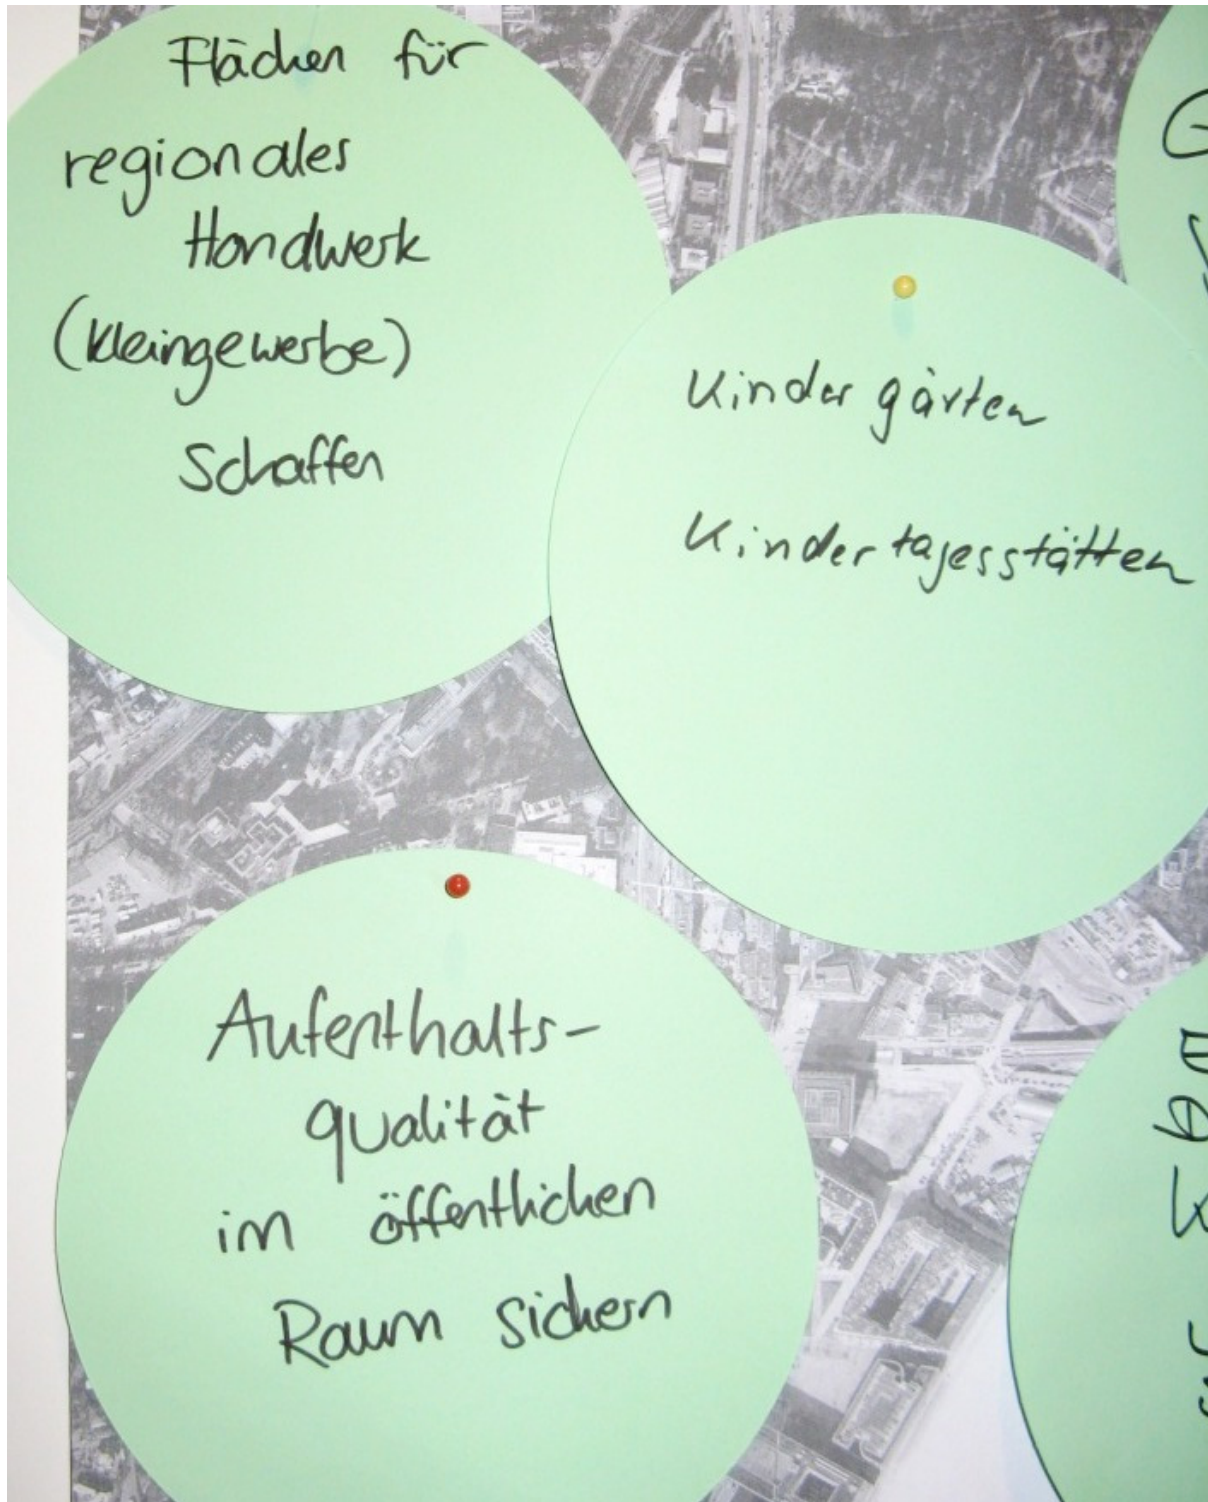 Flächen für
regionales
Handwerk
(Kleingewerbe)
schaffen
Kindergärten
Kindertagesstätten
Aufenthalts-
qualität
im öffentlichen
Raum sichern